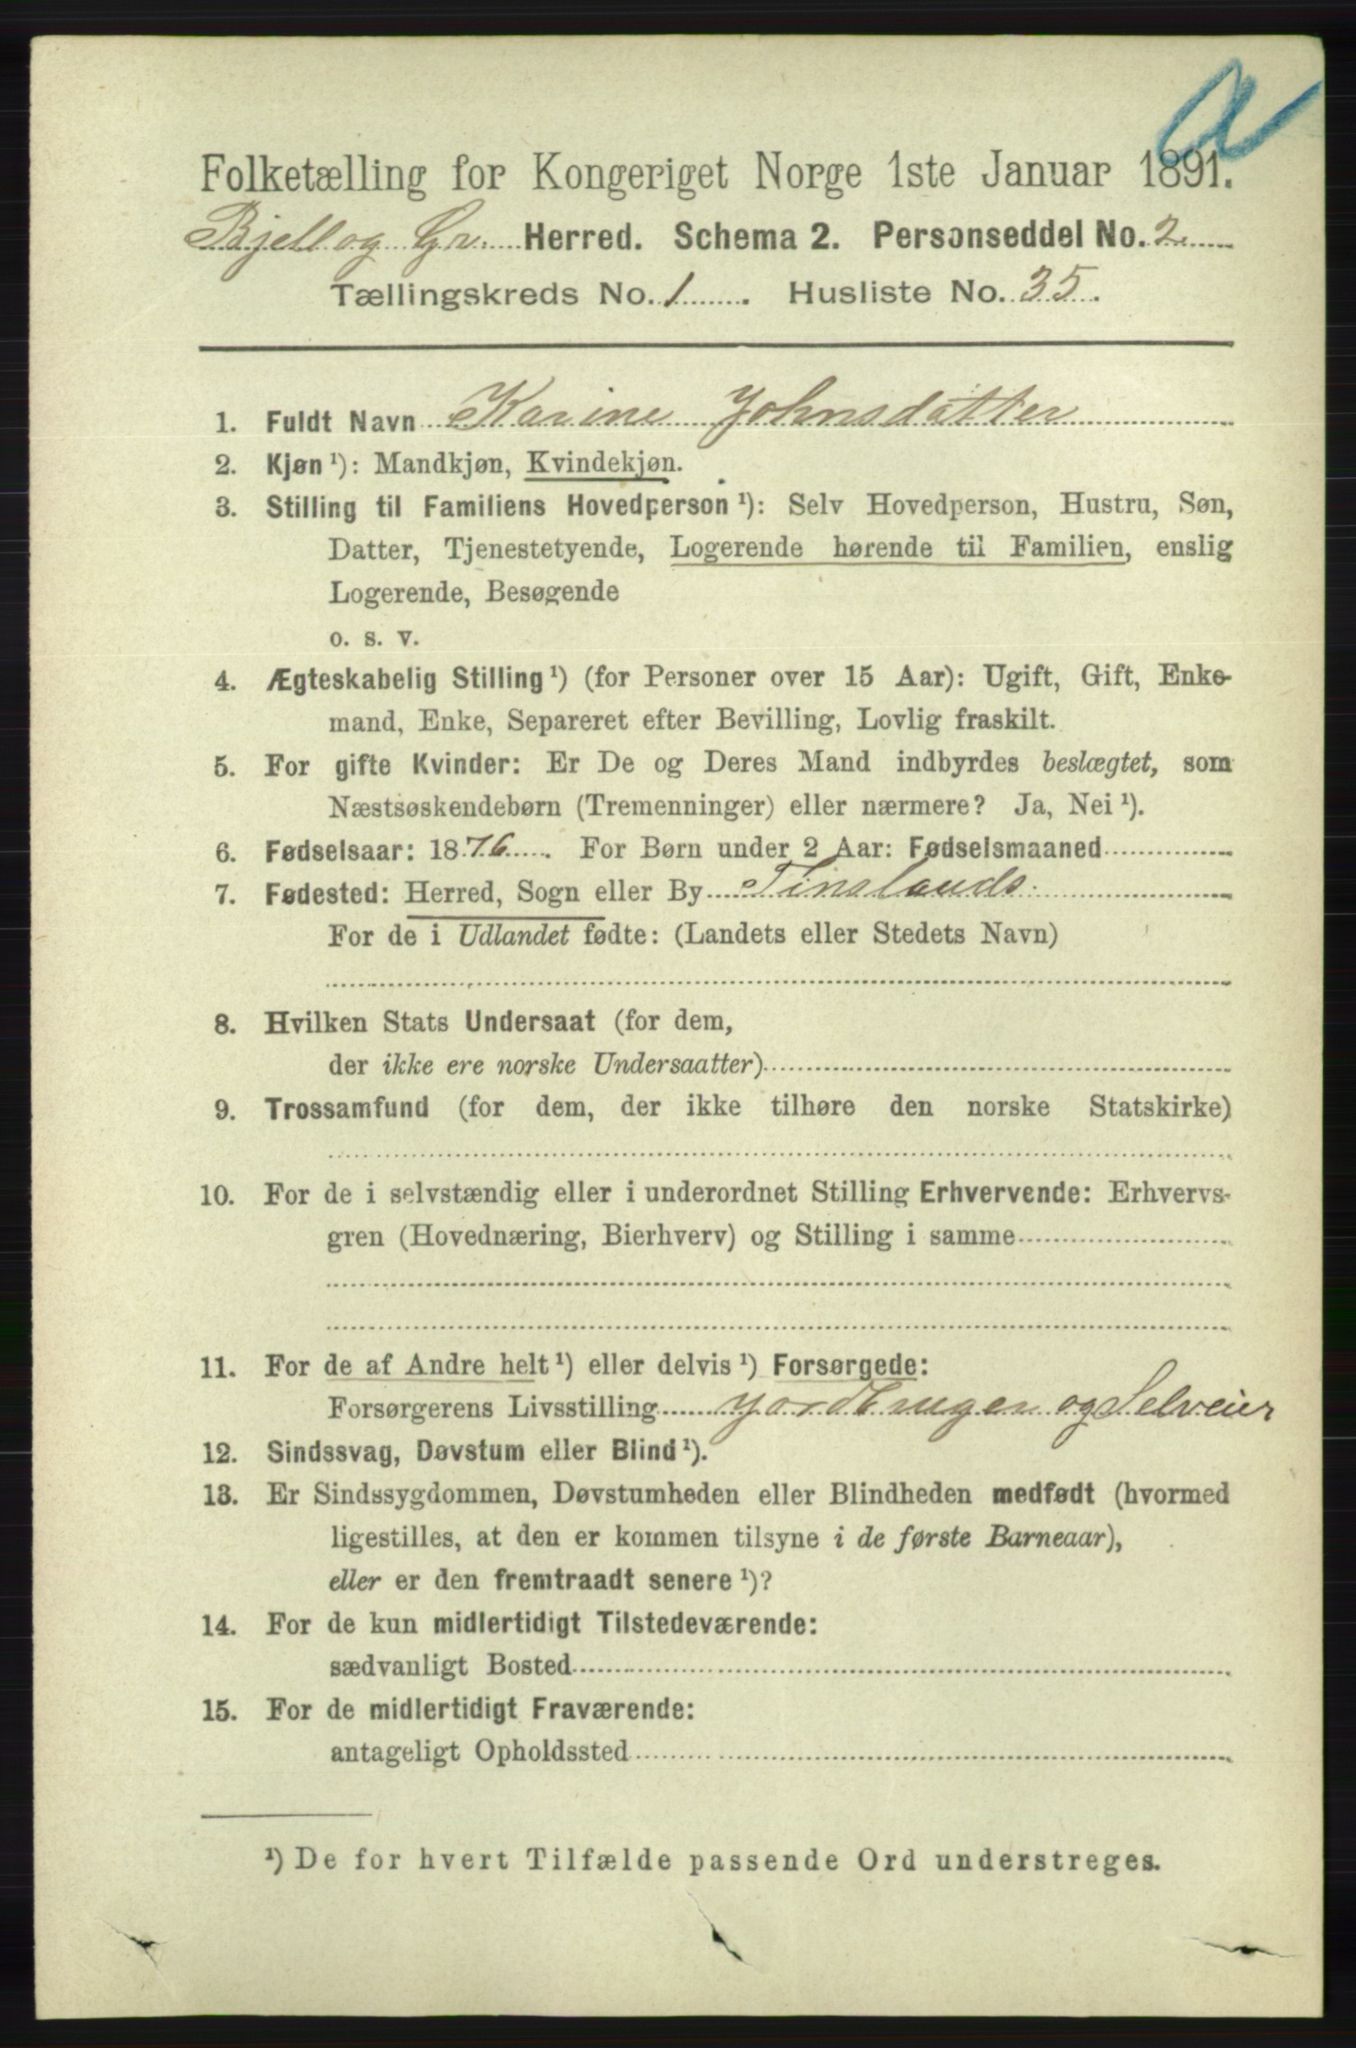 a
Folketælling for Kongeriget Norge 1ste Januar 1891.
Bjell og Gr. Herred. Schema 2. Personseddel No. 2
Tællingskreds No. 1. Husliste No. 35.
1. Fuldt Navn Karine Johnsdatter
2. Kjøn ¹): Mandkjøn, Kvindekjøn.
3. Stilling til Familiens Hovedperson ¹): Selv Hovedperson, Hustru, Søn,
Datter, Tjenestetyende, Logerende hørende til Familien, enslig
Logerende, Besøgende
o. s. v.
4. Ægteskabelig Stilling ¹) (for Personer over 15 Aar): Ugift, Gift, Enke-
mand, Enke, Separeret efter Bevilling, Lovlig fraskilt.
5. For gifte Kvinder: Er De og Deres Mand indbyrdes beslægtet, som
Næstsøskendebørn (Tremenninger) eller nærmere? Ja, Nei ¹).
6. Fødselsaar: 1876. For Børn under 2 Aar: Fødselsmaaned
7. Fødested: Herred, Sogn eller By Finslands.
For de i Udlandet fødte: (Landets eller Stedets Navn)
8. Hvilken Stats Undersaat (for dem,
der ikke ere norske Undersaatter)
9. Trossamfund (for dem, der ikke tilhøre den norske Statskirke)
10. For de i selvstændig eller i underordnet Stilling Erhvervende: Erhvervs-
gren (Hovednæring, Bierhverv) og Stilling i samme
11. For de af Andre helt ¹) eller delvis ¹) Forsørgede:
Forsørgerens Livsstilling Jordbruger og Selveier
12. Sindssvag, Døvstum eller Blind ¹).
13. Er Sindssygdommen, Døvstumheden eller Blindheden medfødt (hvormed
ligestilles, at den er kommen tilsyne i de første Barneaar),
eller er den fremtraadt senere ¹)?
14. For de kun midlertidigt Tilstedeværende:
sædvanligt Bosted
15. For de midlertidigt Fraværende:
antageligt Opholdssted
¹) De for hvert Tilfælde passende Ord understreges.